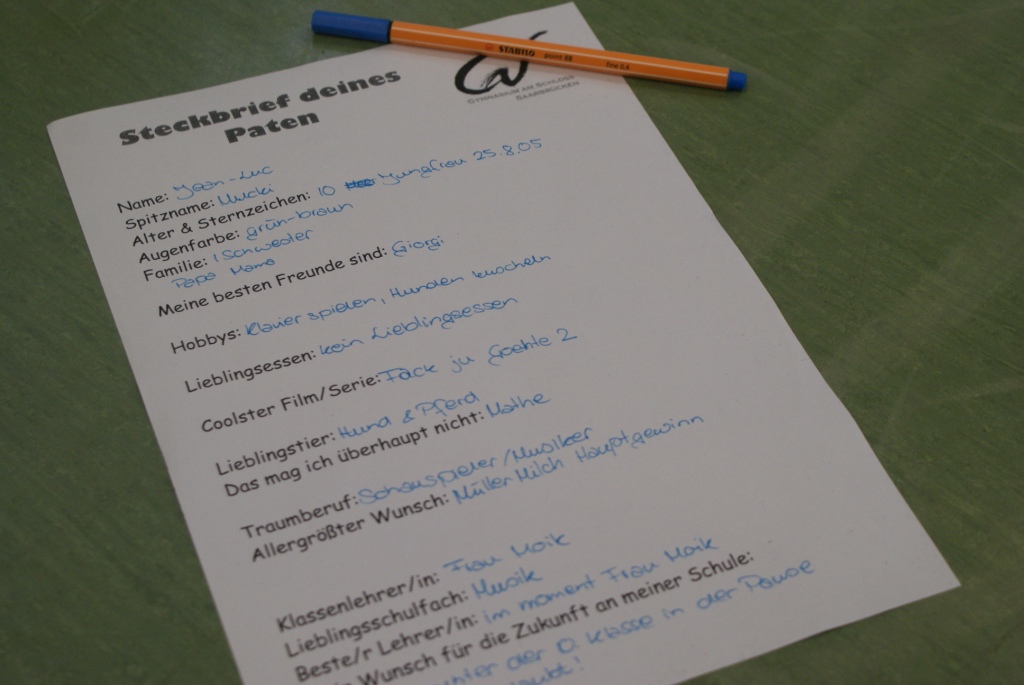 STABILO point 88 fine 0,4
GYMNASIUM AM SCHLOSS
SAARBRÜCKEN
Steckbrief deines
Paten
Name: Jean-Luc
Spitzname: Mucki
Alter & Sternzeichen: 10 Jungfrau 25.8.05
Augenfarbe: grün-braun
Familie: 1 Schwester
Papa Mama
Meine besten Freunde sind: Giorgi
Hobbys: Klavier spielen, Hunden kuscheln
Lieblingsessen: kein Lieblingsessen
Coolster Film/Serie: Fack ju Goehte 2
Lieblingstier: Hund & Pferd
Das mag ich überhaupt nicht: Mathe
Traumberuf: Schauspieler/Musiker
Allergrößter Wunsch: Müller Milch Hauptgewinn
Klassenlehrer/in: Frau Maik
Lieblingsschulfach: Musik
Beste/r Lehrer/in: im moment Frau Maik
Wunsch für die Zukunft an meiner Schule:
der 10. Klasse in der Pause